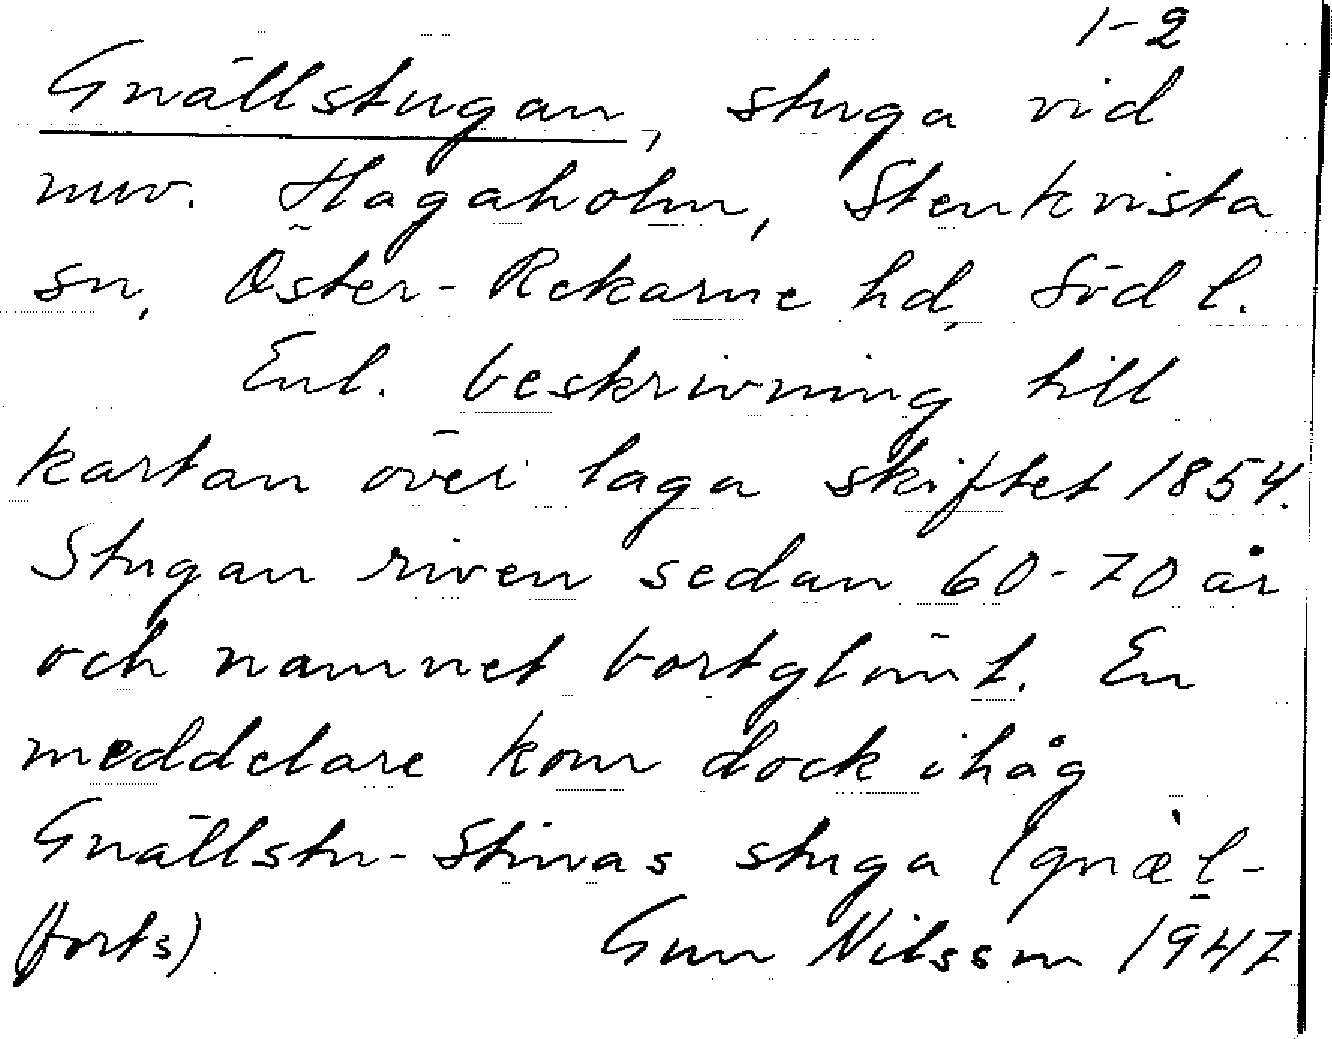 1-2
Gnällstugan, stuga vid
nuv. Hagaholm, Stenkvista
sn, Öster-Rekarne hd, Söd l.
Enl. beskrivning till
kartan över laga skiftet 1854.
Stugan riven sedan 60-70 år
och namnet bortglömt. En
meddelare kom dock ihåg
Gnällstu-Stinas stuga (gnæl-
(forts) Gun Nilsson 1947